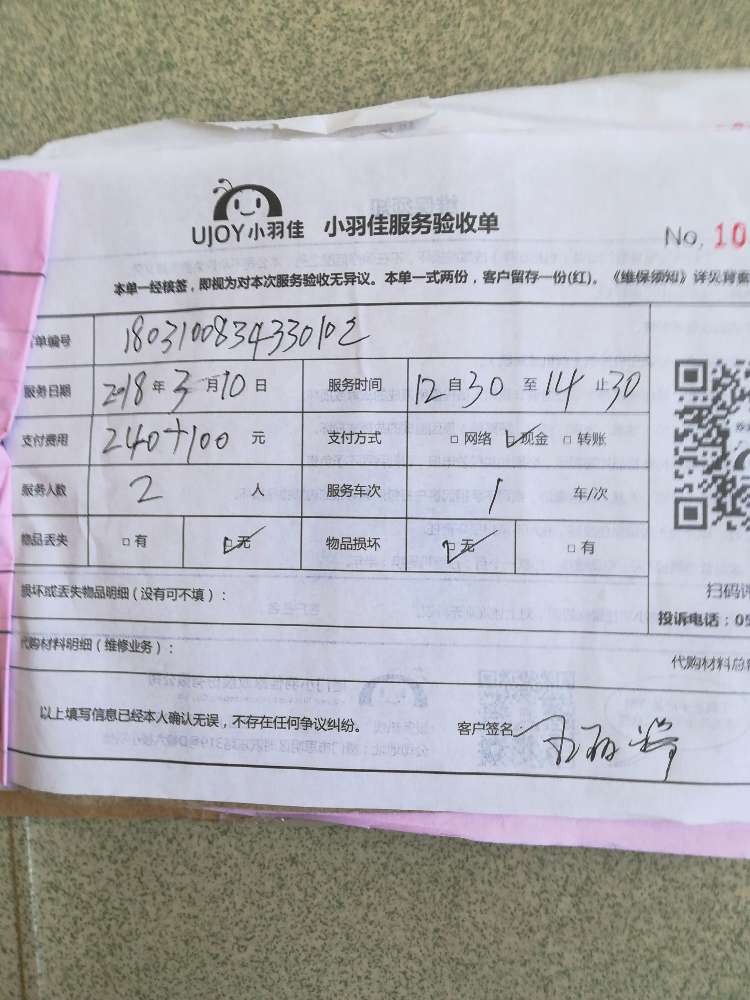 UJOY小羽佳 小羽佳服务验收单
No, 10
本单一经核签，即视为对本次服务验收无异议。本单一式两份，客户留存一份(红)。《维保须知》详见背面
单编号 1803100834330102
服务日期 2018年3月10日 服务时间 12自30至14止30
支付费用 240+100元 支付方式 □网络 ☑现金 □转账
服务人数 2人 服务车次 1车/次
物品丢失 □有 ☑无 物品损坏 ☑无 □有
损坏或丢失物品明细（没有可不填）：
扫码评
投诉电话：05
代购材料明细（维修业务）：
代购材料总
以上填写信息已经本人确认无误，不存在任何争议纠纷。 客户签名